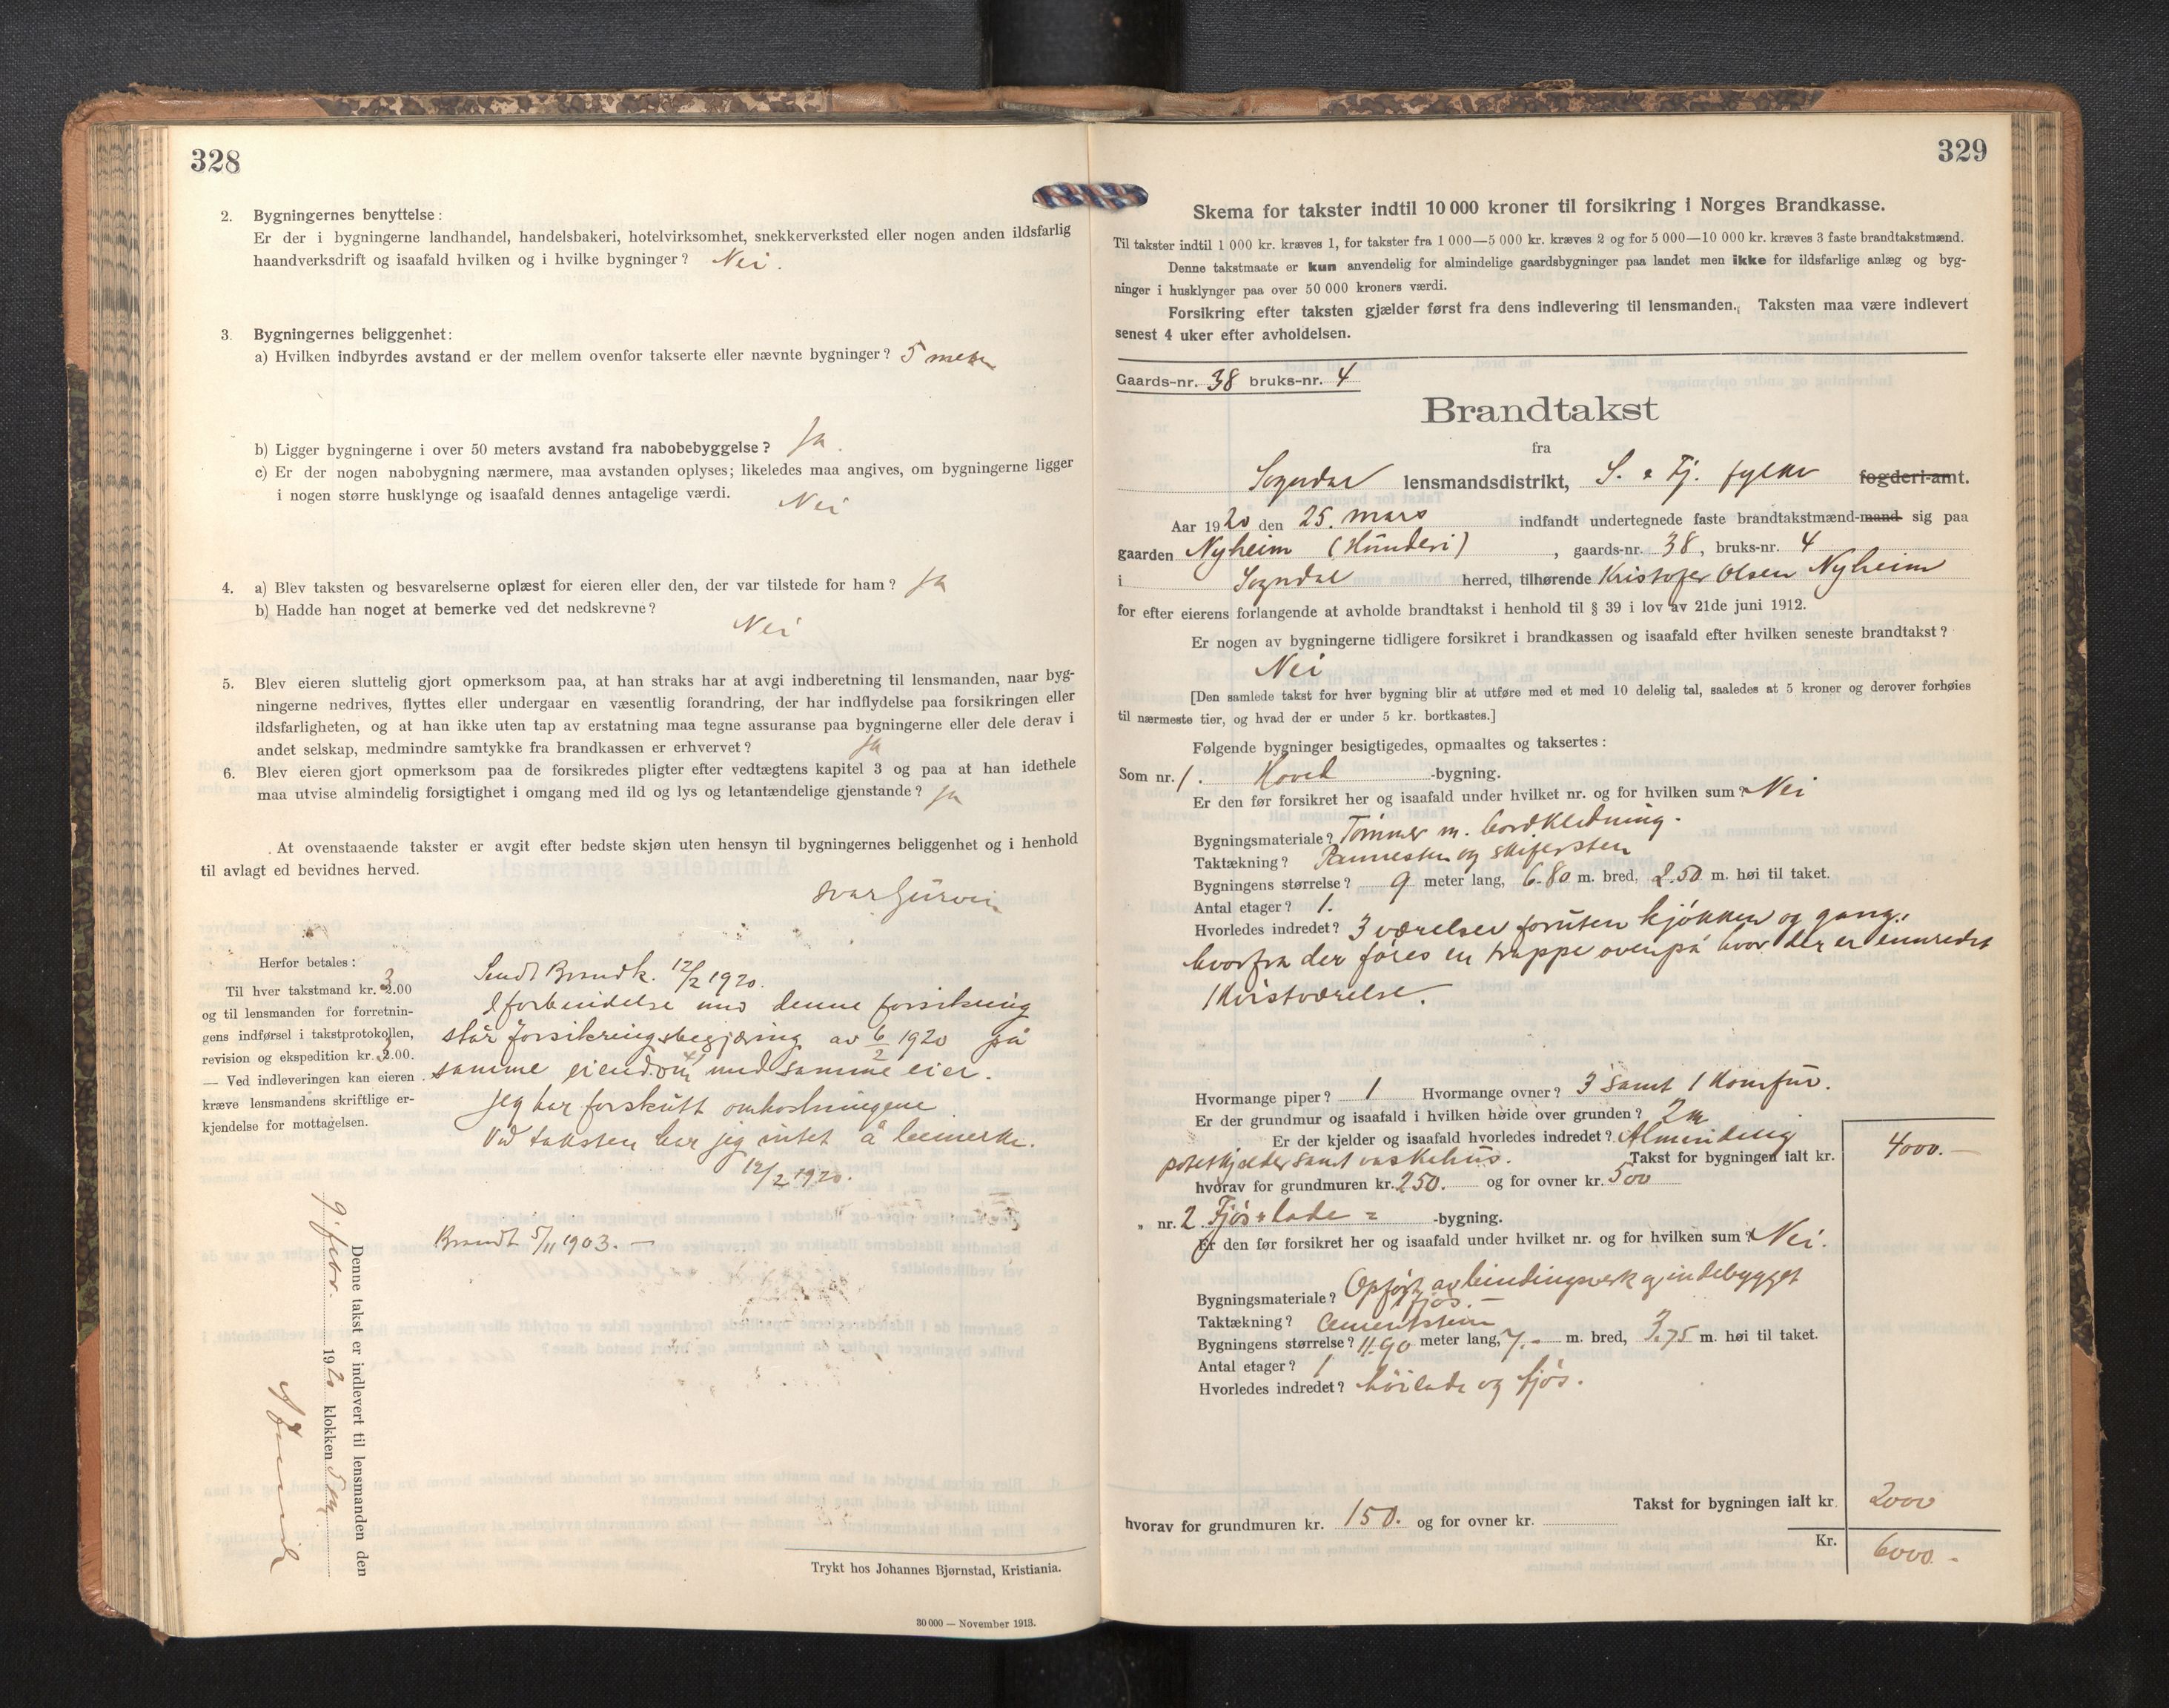 328
2. Bygningernes benyttelse:
Er der i bygningerne landhandel, handelsbakeri, hotelvirksomhet, snekkerverksted eller nogen anden ildsfarlig
haandverksdrift og isaafald hvilken og i hvilke bygninger? Nei.
3. Bygningernes beliggenhet:
a) Hvilken indbyrdes avstand er der mellem ovenfor takserte eller nævnte bygninger? 5 meter
b) Ligger bygningerne i over 50 meters avstand fra nabobebyggelse? Ja.
c) Er der nogen nabobygning nærmere, maa avstanden oplyses; likeledes maa angives, om bygningerne ligger
i nogen større husklynge og isaafald dennes antagelige værdi. Nei
4. a) Blev taksten og besvarelserne oplæst for eieren eller den, der var tilstede for ham? Ja
b) Hadde han noget at bemerke ved det nedskrevne?
Nei
5. Blev eieren sluttelig gjort opmerksom paa, at han straks har at avgi indberetning til lensmanden, naar byg-
ningerne nedrives, flyttes eller undergaar en væsentlig forandring, der har indflydelse paa forsikringen eller
ildsfarligheten, og at han ikke uten tap av erstatning maa tegne assuranse paa bygningerne eller dele derav i
andet selskap, medmindre samtykke fra brandkassen er erhvervet? Ja
6. Blev eieren gjort opmerksom paa de forsikredes pligter efter vedtægtens kapitel 3 og paa at han idethele
maa utvise almindelig forsigtighet i omgang med ild og lys og letantændelige gjenstande? Ja
At ovenstaaende takster er avgit efter bedste skjøn uten hensyn til bygningernes beliggenhet og i henhold
til avlagt ed bevidnes herved.
Ivar Gurvin
Herfor betales:
Til hver takstmand kr. 3.00
og til lensmanden for forretnin-
gens indførsel i takstprotokollen,
revision og ekspedition kr. 3.00.
— Ved indleveringen kan eieren
kræve lensmandens skriftlige er-
kjendelse for mottagelsen.
Sendt Brandk. 12/2 1920.
I forbindelse med denne forsikring
står forsikringsbegjæring av 6/2 1920 på
samme eiendom med samme eier.
Jeg har forskutt omkostningene.
Ved taksten har jeg intet å bemerke.
12/2 1920.
Brandt 5/11 1903. —
Denne takst er indlevert til lensmanden den
9. febr. 1920 klokken 5 em.
Trykt hos Johannes Bjørnstad, Kristiania.
30 000 — November 1913.
329
Skema for takster indtil 10 000 kroner til forsikring i Norges Brandkasse.
Til takster indtil 1 000 kr. kræves 1, for takster fra 1 000—5 000 kr. kræves 2 og for 5 000—10 000 kr. kræves 3 faste brandtakstmænd.
Denne takstmaate er kun anvendelig for almindelige gaardsbygninger paa landet men ikke for ildsfarlige anlæg og byg-
ninger i husklynger paa over 50 000 kroners værdi.
Forsikring efter taksten gjælder først fra dens indlevering til lensmanden. Taksten maa være indlevert
senest 4 uker efter avholdelsen.
Gaards-nr. 38 bruks-nr. 4
Brandtakst
fra
Sogndal lensmandsdistrikt, S. & Fj. fylke fogderi-amt.
Aar 1920 den 25. mars indfandt undertegnede faste brandtakstmænd-mand sig paa
gaarden Nyheim (Hunderi), gaards-nr. 38, bruks-nr. 4
i Sogndal herred, tilhørende Kristofer Olsen Nyheim
for efter eierens forlangende at avholde brandtakst i henhold til § 39 i lov av 21de juni 1912.
Er nogen av bygningerne tidligere forsikret i brandkassen og isaafald efter hvilken seneste brandtakst?
Nei
[Den samlede takst for hver bygning blir at utføre med et med 10 delelig tal, saaledes at 5 kroner og derover forhøies
til nærmeste tier, og hvad der er under 5 kr. bortkastes.]
Følgende bygninger besigtigedes, opmaaltes og taksertes:
Som nr. 1. Hoved -bygning.
Er den før forsikret her og isaafald under hvilket nr. og for hvilken sum? Nei
Bygningsmateriale? Tømmer m. bordklædning.
Taktækning? Pannesten og skifersten
Bygningens størrelse? 9 meter lang, 6.80 m. bred, 2.50 m. høi til taket.
Antal etager? 1.
Hvorledes indredet? 3 værelser foruten kjøkken og gang,
hvorfra der føres en trappe ovenpå hvor der er innredet
1 kvistværelse.
Hvormange piper? 1 Hvormange ovner? 3 samt 1 komfur.
Er der grundmur og isaafald i hvilken høide over grunden? 2 m
Er der kjelder og isaafald hvorledes indredet? Almindelig
potetkjælder samt vaskehus. Takst for bygningen ialt kr. 4000.—
hvorav for grundmuren kr. 250. og for ovner kr. 500
„ nr. 2 Fjøs & lade = -bygning.
Er den før forsikret her og isaafald under hvilket nr. og for hvilken sum? Nei.
Bygningsmateriale? Opført av bindingsverk og indebygget
fjøs. —
Taktækning? Cementstein
Bygningens størrelse? 11.90 meter lang, 7.- m. bred, 3.75 m. høi til taket.
Antal etager? 1
Hvorledes indredet? høilade og fjøs.
Takst for bygningen ialt kr. 2000
hvorav for grundmuren kr. 150. og for ovner kr.
Kr. 6000.-